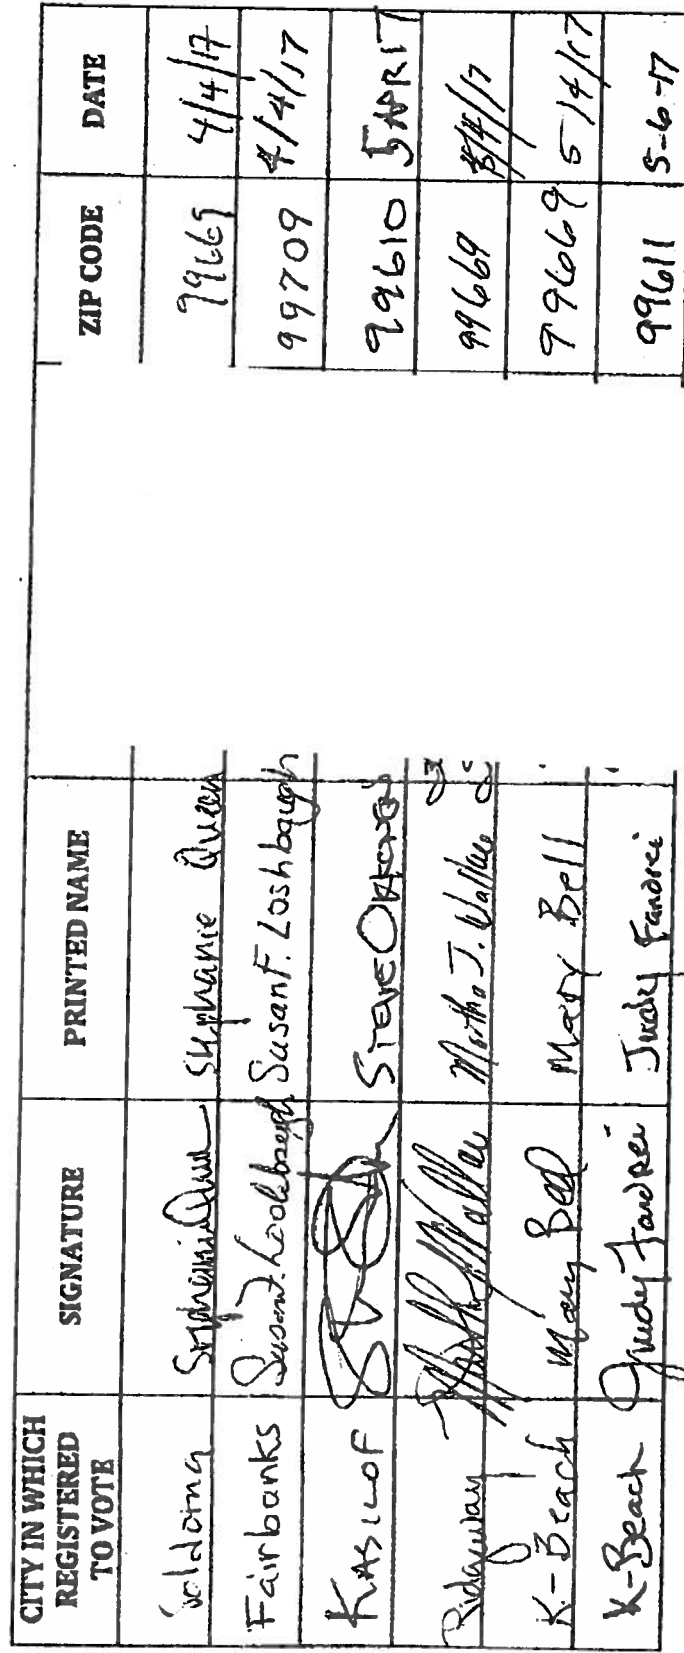 CITY IN WHICH REGISTERED TO VOTE SIGNATURE PRINTED NAME ZIP CODE DATE
Soldotna Stephanie Queen Stephanie Queen 99669 4/4/17
Fairbanks Susan F. Loshbaugh Susan F. Loshbaugh 99709 4/4/17
KASILOF STEVE 99610 5 APR 17
Ridgeway Martha J. Wallace 99669 /4/17
K-Beach Mary Bell Mary Bell 99669 5/4/17
K-Beach Judy Fandrei Judy Fandrei 99611 5-6-17